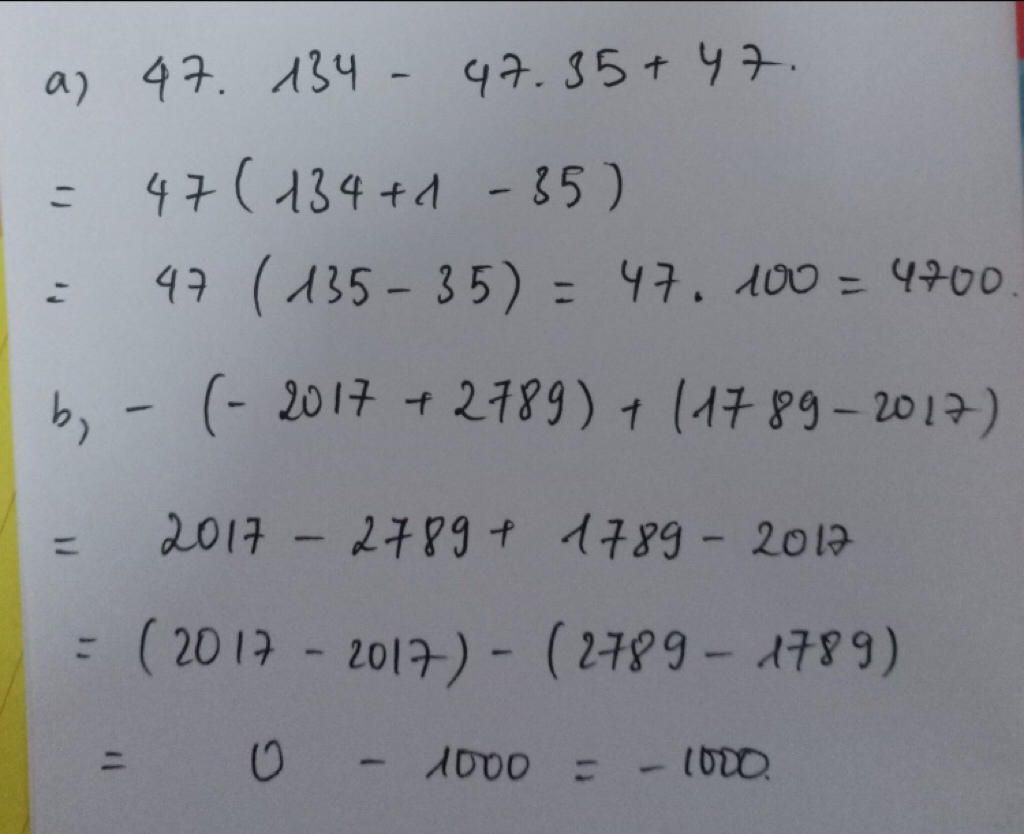 a) 47. 134 - 47.35 + 47.
= 47 ( 134 + 1 - 35 )
= 47 ( 135 - 35 ) = 47. 100 = 4700.
b, - (- 2017 + 2789) + (1789 - 2017)
= 2017 - 2789 + 1789 - 2017
= (2017 - 2017) - (2789 - 1789)
= 0 - 1000 = - 1000.